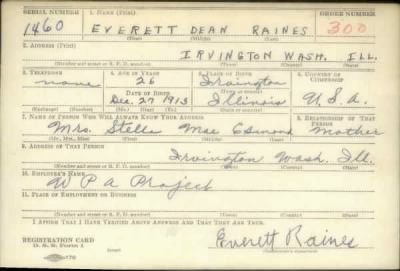 SERIAL NUMBER 1. NAME (Print) ORDER NUMBER
1460 EVERETT DEAN RAINES 300
(First) (Middle) (Last)
2. ADDRESS (Print)
IRVINGTON WASH. ILL.
(Number and street or R. F. D. number) (Town) (County) (State)
3. TELEPHONE 4. AGE IN YEARS 5. PLACE OF BIRTH 6. COUNTRY OF CITIZENSHIP
none 26 Irvington
DATE OF BIRTH (Town or county)
Dec. 27 1913 Illinois U.S.A.
(Exchange) (Number) (Mo.) (Day) (Yr.) (State or country)
7. NAME OF PERSON WHO WILL ALWAYS KNOW YOUR ADDRESS 8. RELATIONSHIP OF THAT PERSON
Mrs. Stella Mae Esmond Mother
(Mr., Mrs., Miss) (First) (Middle) (Last)
9. ADDRESS OF THAT PERSON
Irvington Wash. Ill.
(Number and street or R. F. D. number) (Town) (County) (State)
10. EMPLOYER'S NAME
W P A Project
11. PLACE OF EMPLOYMENT OR BUSINESS
(Number and street or R. F. D. number) (Town) (County) (State)
I AFFIRM THAT I HAVE VERIFIED ABOVE ANSWERS AND THAT THEY ARE TRUE.
REGISTRATION CARD
D. S. S. Form 1
Everett Raines
(Registrant's signature)